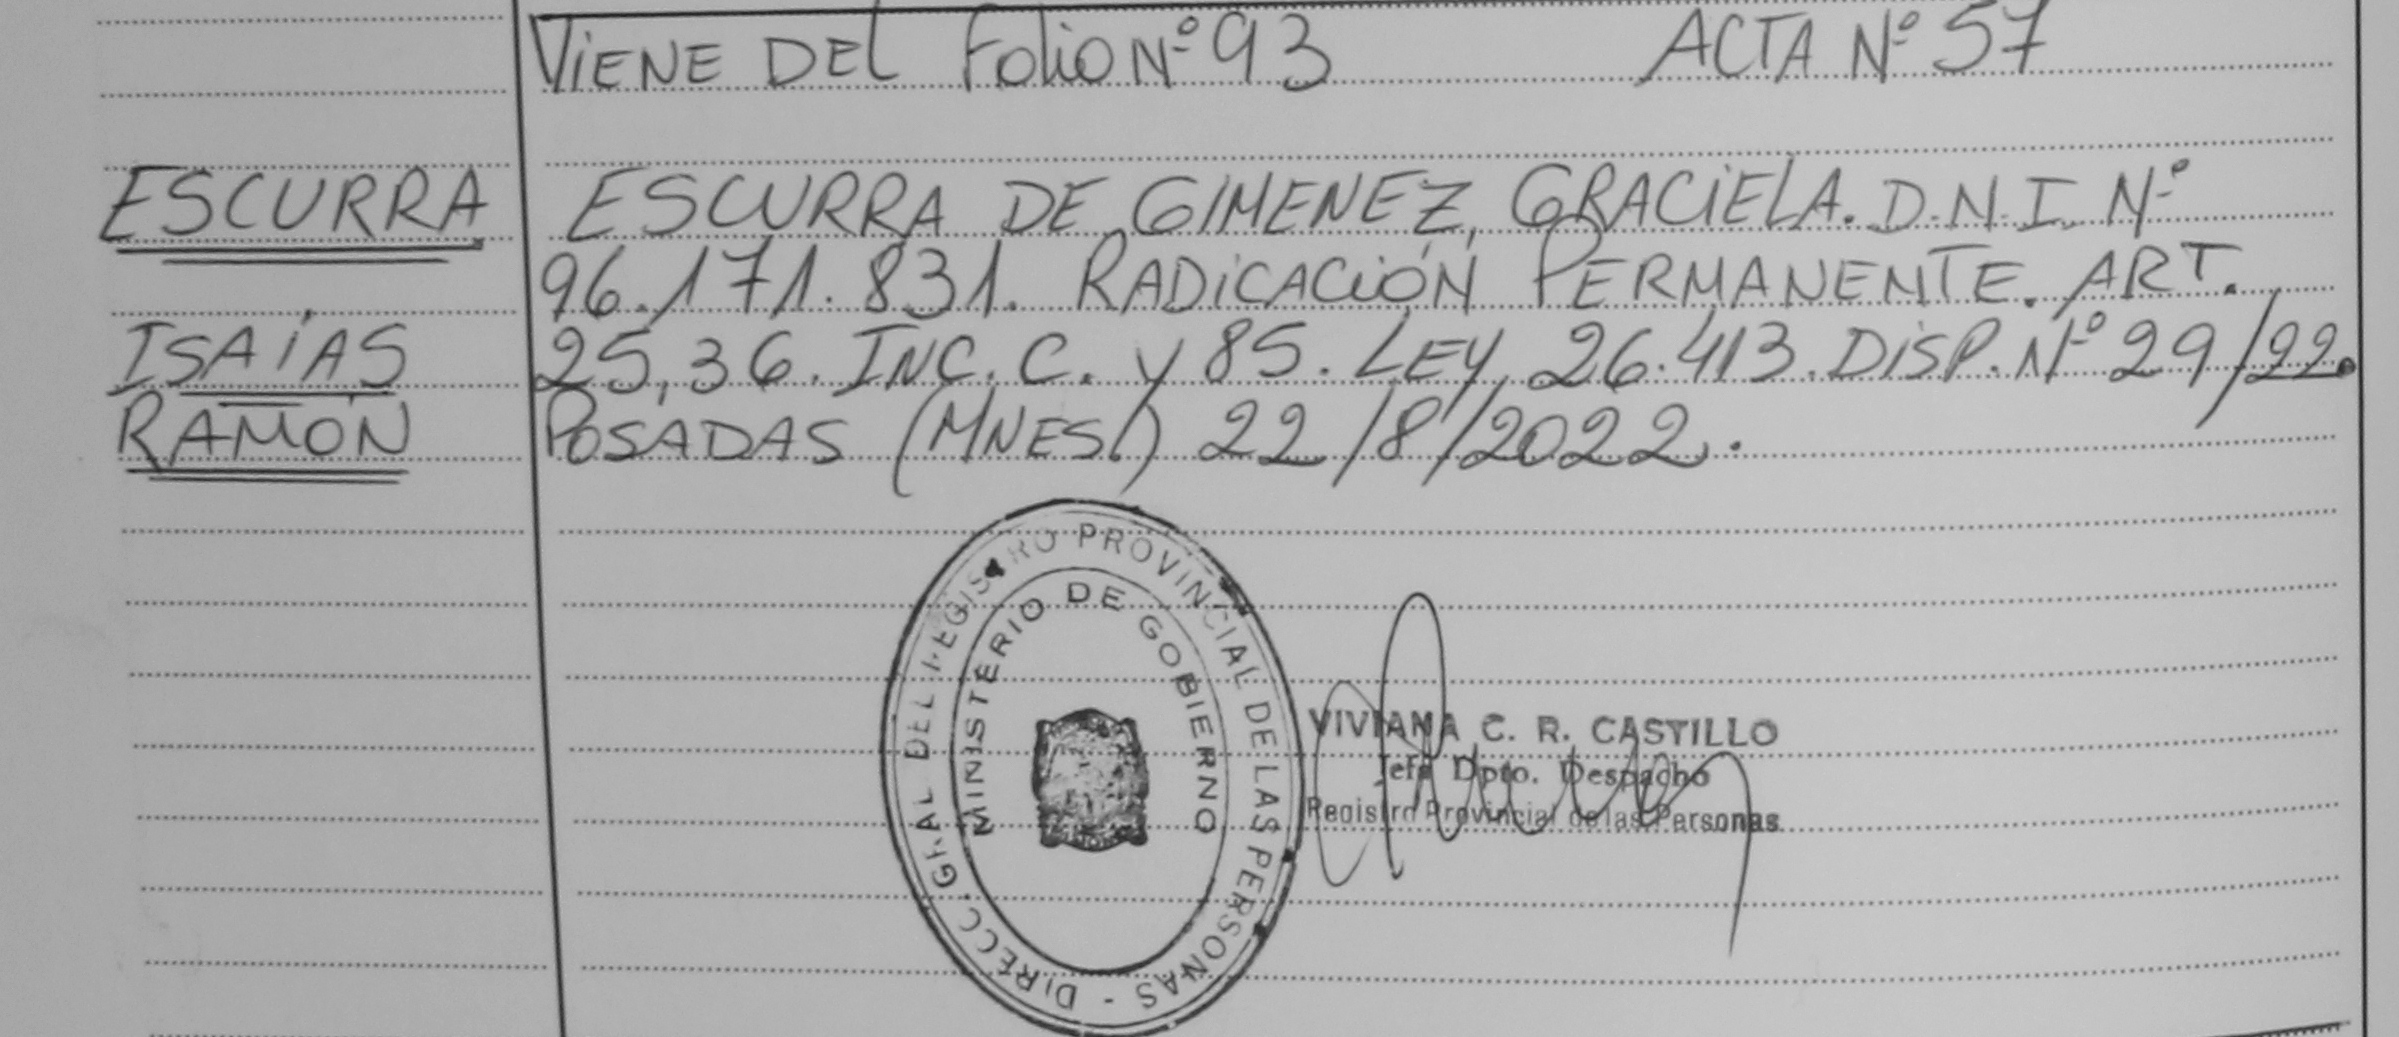 VIENE DEL Folio Nº 93 ACTA Nº 57
ESCURRA
ISAÍAS
RAMÓN
ESCURRA DE GIMENEZ, GRACIELA. D.N.I. Nº
96.171.831. RADICACIÓN PERMANENTE. ART.
25,36. INC. C. y 85. LEY, 26.413. DISP. Nº 29/22.
POSADAS (MNES.) 22/8/2022.
DIRECC. GRAL DEL REGISTRO PROVINCIAL DE LAS PERSONAS -
MINISTERIO DE GOBIERNO
VIVIANA C. R. CASTILLO
Jefa Dpto. Despacho
Registro Provincial de las Personas